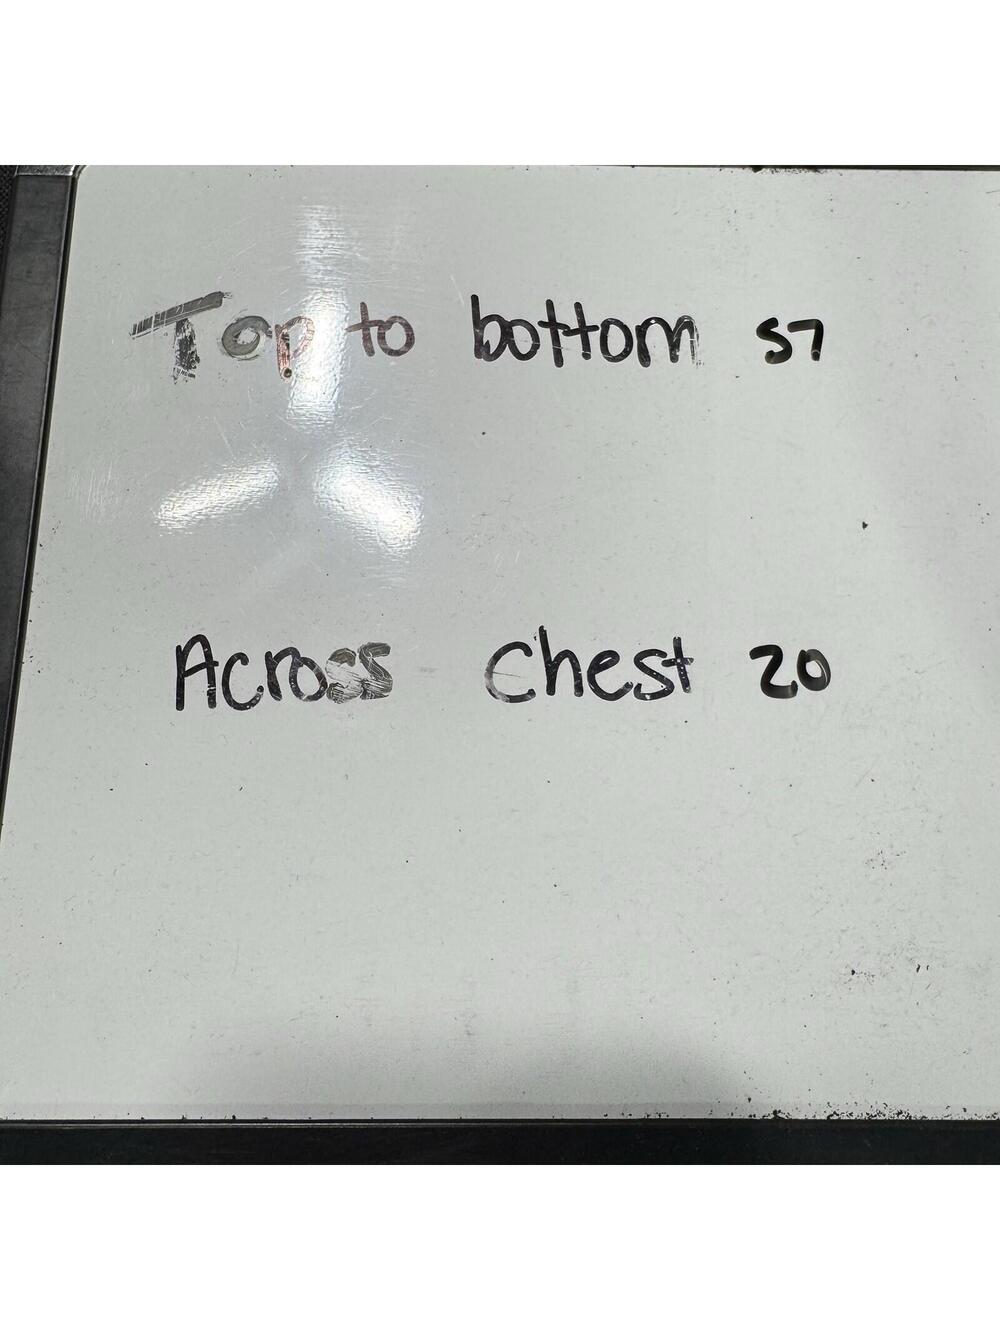 Top to bottom 57
Across Chest 20